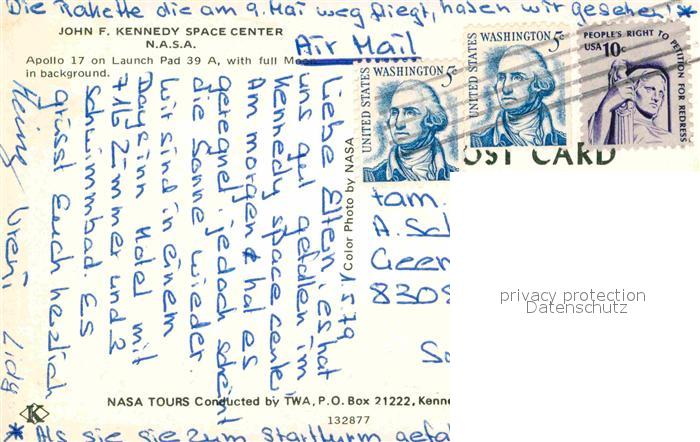 Die Rakette die am 9. Mai weg fliegt, haben wir gesehen! *
JOHN F. KENNEDY SPACE CENTER
N.A.S.A.
Apollo 17 on Launch Pad 39 A, with full Moon
in background.
Air Mail
UNITED STATES
WASHINGTON 5c
UNITED STATES
WASHINGTON 5c
PEOPLE'S RIGHT TO PETITION FOR REDRESS
USA 10c
OST CARD
Color Photo by NASA
1.5.79
Liebe Eltern, es hat
uns gut gefallen im
Kennedy space center
Am morgen hat es
geregnet, jedoch scheint
die Sonne wieder.
Wir sind in einem
Days inn Hotel mit
716 Zimmer und 2
Schwimmbad. Es
grüsst Euch herzlich
Heinz Vreni Lidy
Fam.
A. Sch
Geer
8308
NASA TOURS Conducted by TWA, P.O. Box 21222, Kenne
K
132877
* Als sie sie zum Startturm gefa
privacy protection
Datenschutz